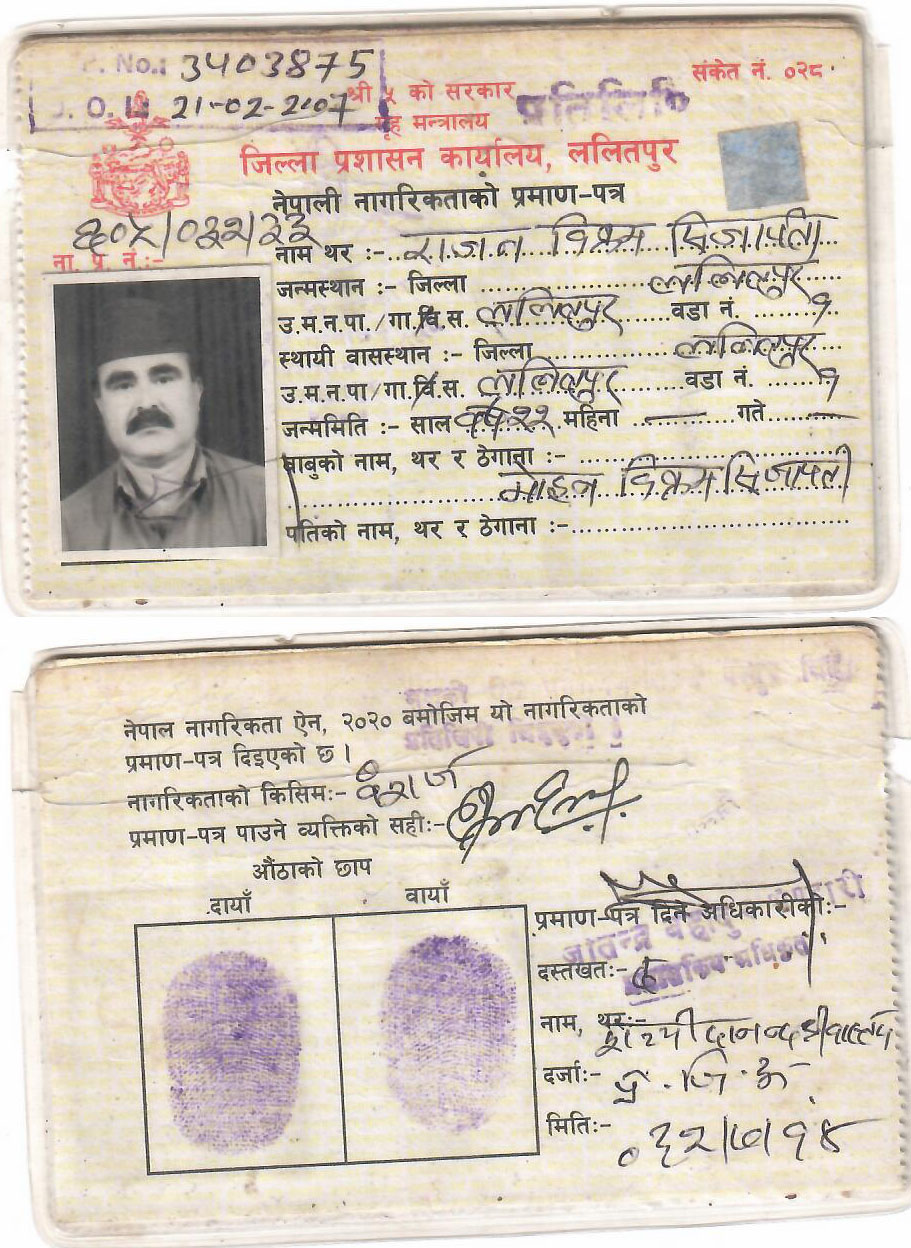 No.: 3403875
21-02-2007
संकेत नं. ०२८
श्री ५ को सरकार
गृह मन्त्रालय
प्रतिलिपि
जिल्ला प्रशासन कार्यालय, ललितपुर
नेपाली नागरिकताको प्रमाण-पत्र
ना. प्र. नं.:-
नाम थर :- विक्रम सिजापती
जन्मस्थान :- जिल्ला ललितपुर
उ.म.न.पा./गा.वि.स. ललितपुर वडा नं. १
स्थायी वासस्थान :- जिल्ला ललितपुर
उ.म.न.पा/गा.वि.स. ललितपुर वडा नं. १
जन्ममिति :- साल वर्ष २२ महिना — गते —
बाबुको नाम, थर र ठेगाना :-
विक्रम सिजापती
पतिको नाम, थर र ठेगाना :-
नेपाल नागरिकता ऐन, २०२० बमोजिम यो नागरिकताको
प्रमाण-पत्र दिइएको छ।
नागरिकताको किसिमः- वंशज
प्रमाण-पत्र पाउने व्यक्तिको सहीः-
औंठाको छाप
दायाँ वायाँ
प्रमाण-पत्र दिने अधिकारीकोः-
दस्तखतः-
नाम, थरः-
दर्जाः- प्र. जि. अ
मितिः- ०३२/७/१४